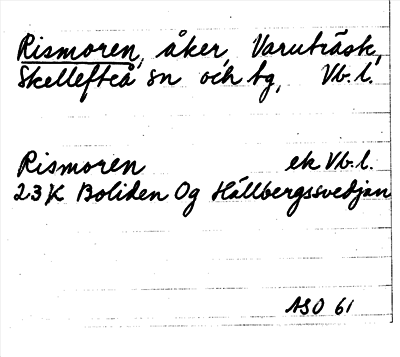 Rismoren, åker, Varuträsk,
Skellefteå sn och tg, Vb.l.
Rismoren ek Vb.l.
23K Boliden Og Hällbergssvedjan
ASO 61